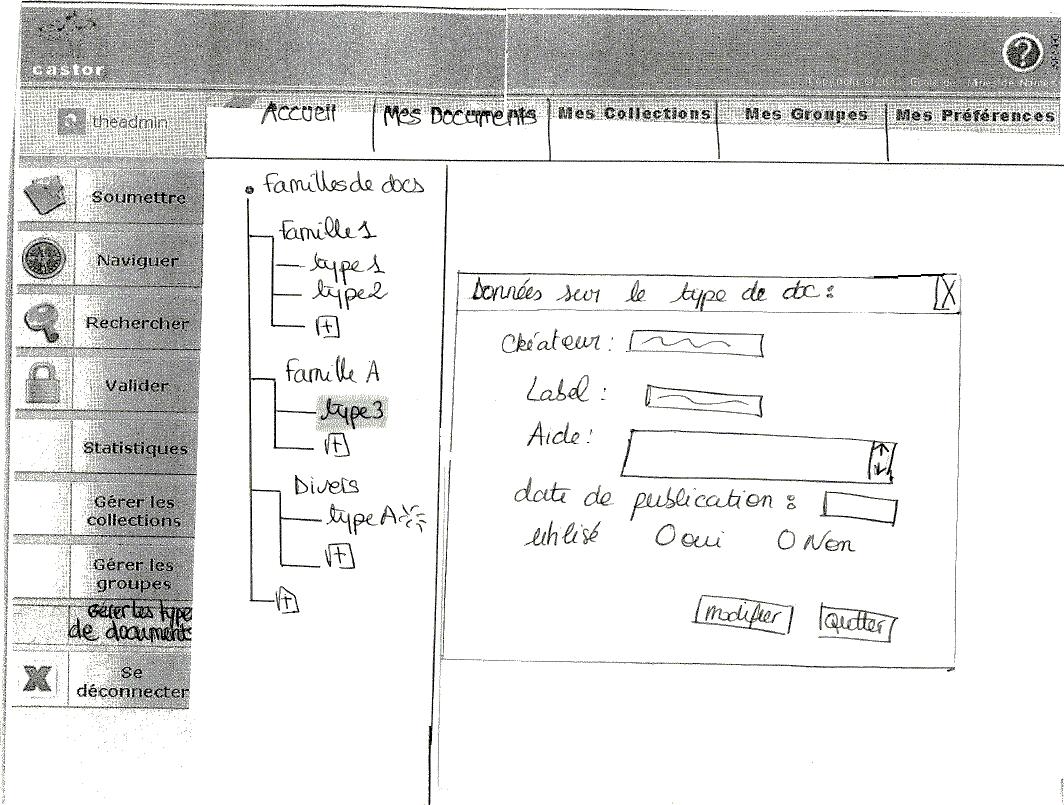 castor
?
theadmin
Accueil
Mes Documents
Mes Collections
Mes Groupes
Mes Préférences
Soumettre
Naviguer
Rechercher
Valider
Statistiques
Gérer les
collections
Gérer les
groupes
Gérer les type
de documents
Se
déconnecter
Familles de docs
Famille 1
type 1
type 2
+
Famille A
type 3
+
Divers
type A
+
+
Données sur le type de doc :
X
Créateur :
Label :
Aide :
date de publication :
utilisé O oui O Non
modifier
Quitter